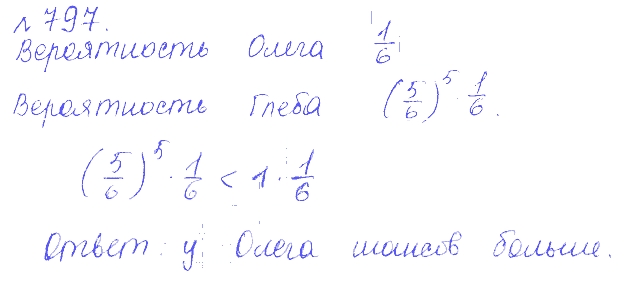 № 797.
Вероятность Олега 1/6
Вероятность Глеба (5/6)^5 · 1/6.
(5/6)^5 · 1/6 < 1 · 1/6
Ответ: у Олега шансов больше.